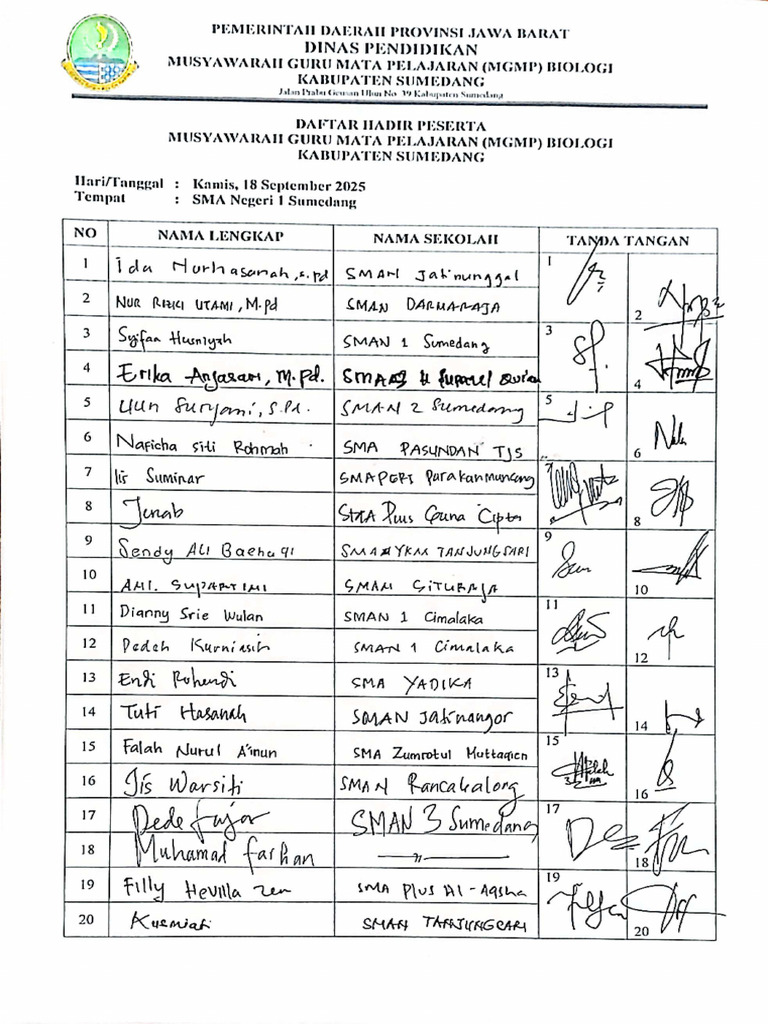 PEMERINTAH DAERAH PROVINSI JAWA BARAT
DINAS PENDIDIKAN
MUSYAWARAH GURU MATA PELAJARAN (MGMP) BIOLOGI
KABUPATEN SUMEDANG
Jalan Prabu Geusan Ulun No. 39 Kabupaten Sumedang
DAFTAR HADIR PESERTA
MUSYAWARAH GURU MATA PELAJARAN (MGMP) BIOLOGI
KABUPATEN SUMEDANG
Hari/Tanggal : Kamis, 18 September 2025
Tempat : SMA Negeri 1 Sumedang
NO NAMA LENGKAP NAMA SEKOLAH TANDA TANGAN
1 Ida Nurhasanah, S.Pd SMAN Jatinunggal 1
2 NUR RIZKI UTAMI, M.Pd SMAN DARMARAJA 2
3 Syifaa Husniyah SMAN 1 Sumedang 3
4 Erika Anjasari, M.Pd. 4
5 Yun Suryani, S.Pd. SMAN 2 Sumedang 5
6 Naficha Siti Rohmah SMA PASUNDAN TJS 6
7 Iis Suminar SMA PGRI Parakanmuncang 7
8 Jenab SMA Plus Guna Cipta 8
9 Sendy Ali Baehaqi SMA YKM TANJUNGSARI 9
10 AHI. SUPARTINI SMAN SITURAJA 10
11 Dianny Srie Wulan SMAN 1 Cimalaka 11
12 Dedeh Kurniasih SMAN 1 Cimalaka 12
13 Endi Rohendi SMA YADIKA 13
14 Tuti Hasanah SMAN Jatinangor 14
15 Falah Nurul A'inun SMA Zumrotul Muttaqien 15
16 Iis Warsiti SMAN Rancakalong 16
17 Dede Fajar SMAN 3 Sumedang 17
18 Muhamad farhan —〃— 18
19 Filly Hevilla Zen SMA Plus Al-Aqsha 19
20 Kusmiati SMAN TANJUNGSARI 20